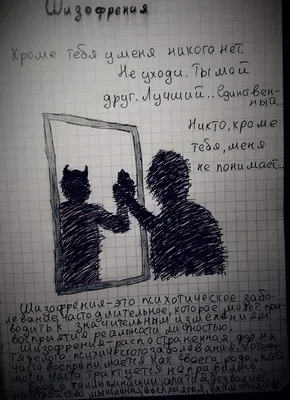 Шизофрения
Кроме тебя у меня никого нет.
Не уходи. Ты мой
друг. Лучший.. Единствен-
ный
Никто, кроме
тебя, меня
не понимает..
Шизофрения-это психотическое забо-
левание, часто длительное, которое может при-
водить к значительным изменениям
восприятия реальности и личностью.
Шизофрения-распространенная форма
тяжелого психического заболевания, которое
часто воспринимается как своего рода
и часто трактуется неправильно.
Бред и галлюцинации, апатия, безволие,
расстройство мышления, восприятия,